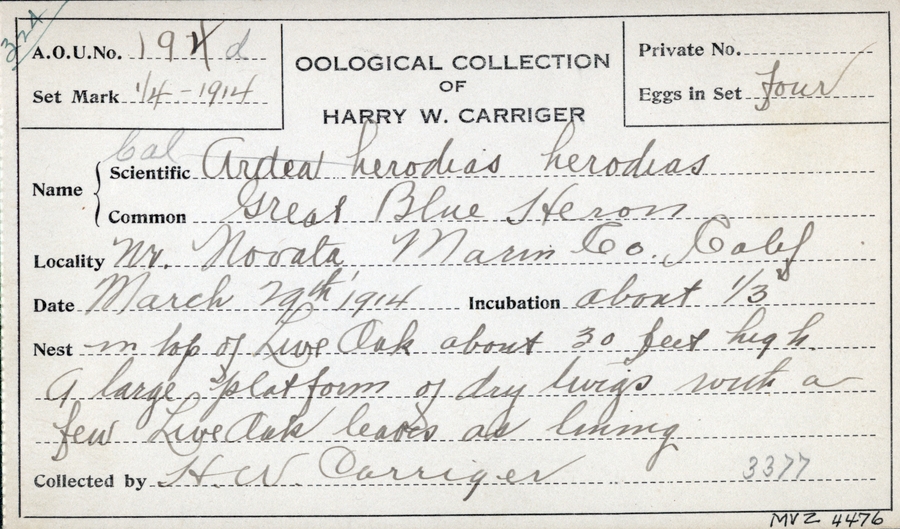 324
A.O.U.No. 194 d
Set Mark 1/4 - 1914
OOLOGICAL COLLECTION
OF
HARRY W. CARRIGER
Private No.
Eggs in Set four
Cal
Name
Scientific Ardea herodias herodias
Common Great Blue Heron
Locality Nr. Novata Marin Co. Calif
Date March 29th 1914 Incubation about 1/3
Nest in top of Live Oak about 30 feet high.
A large platform of dry twigs with a
few Live Oak leaves as lining
Collected by H. W. Carriger 3377
MVZ 4476